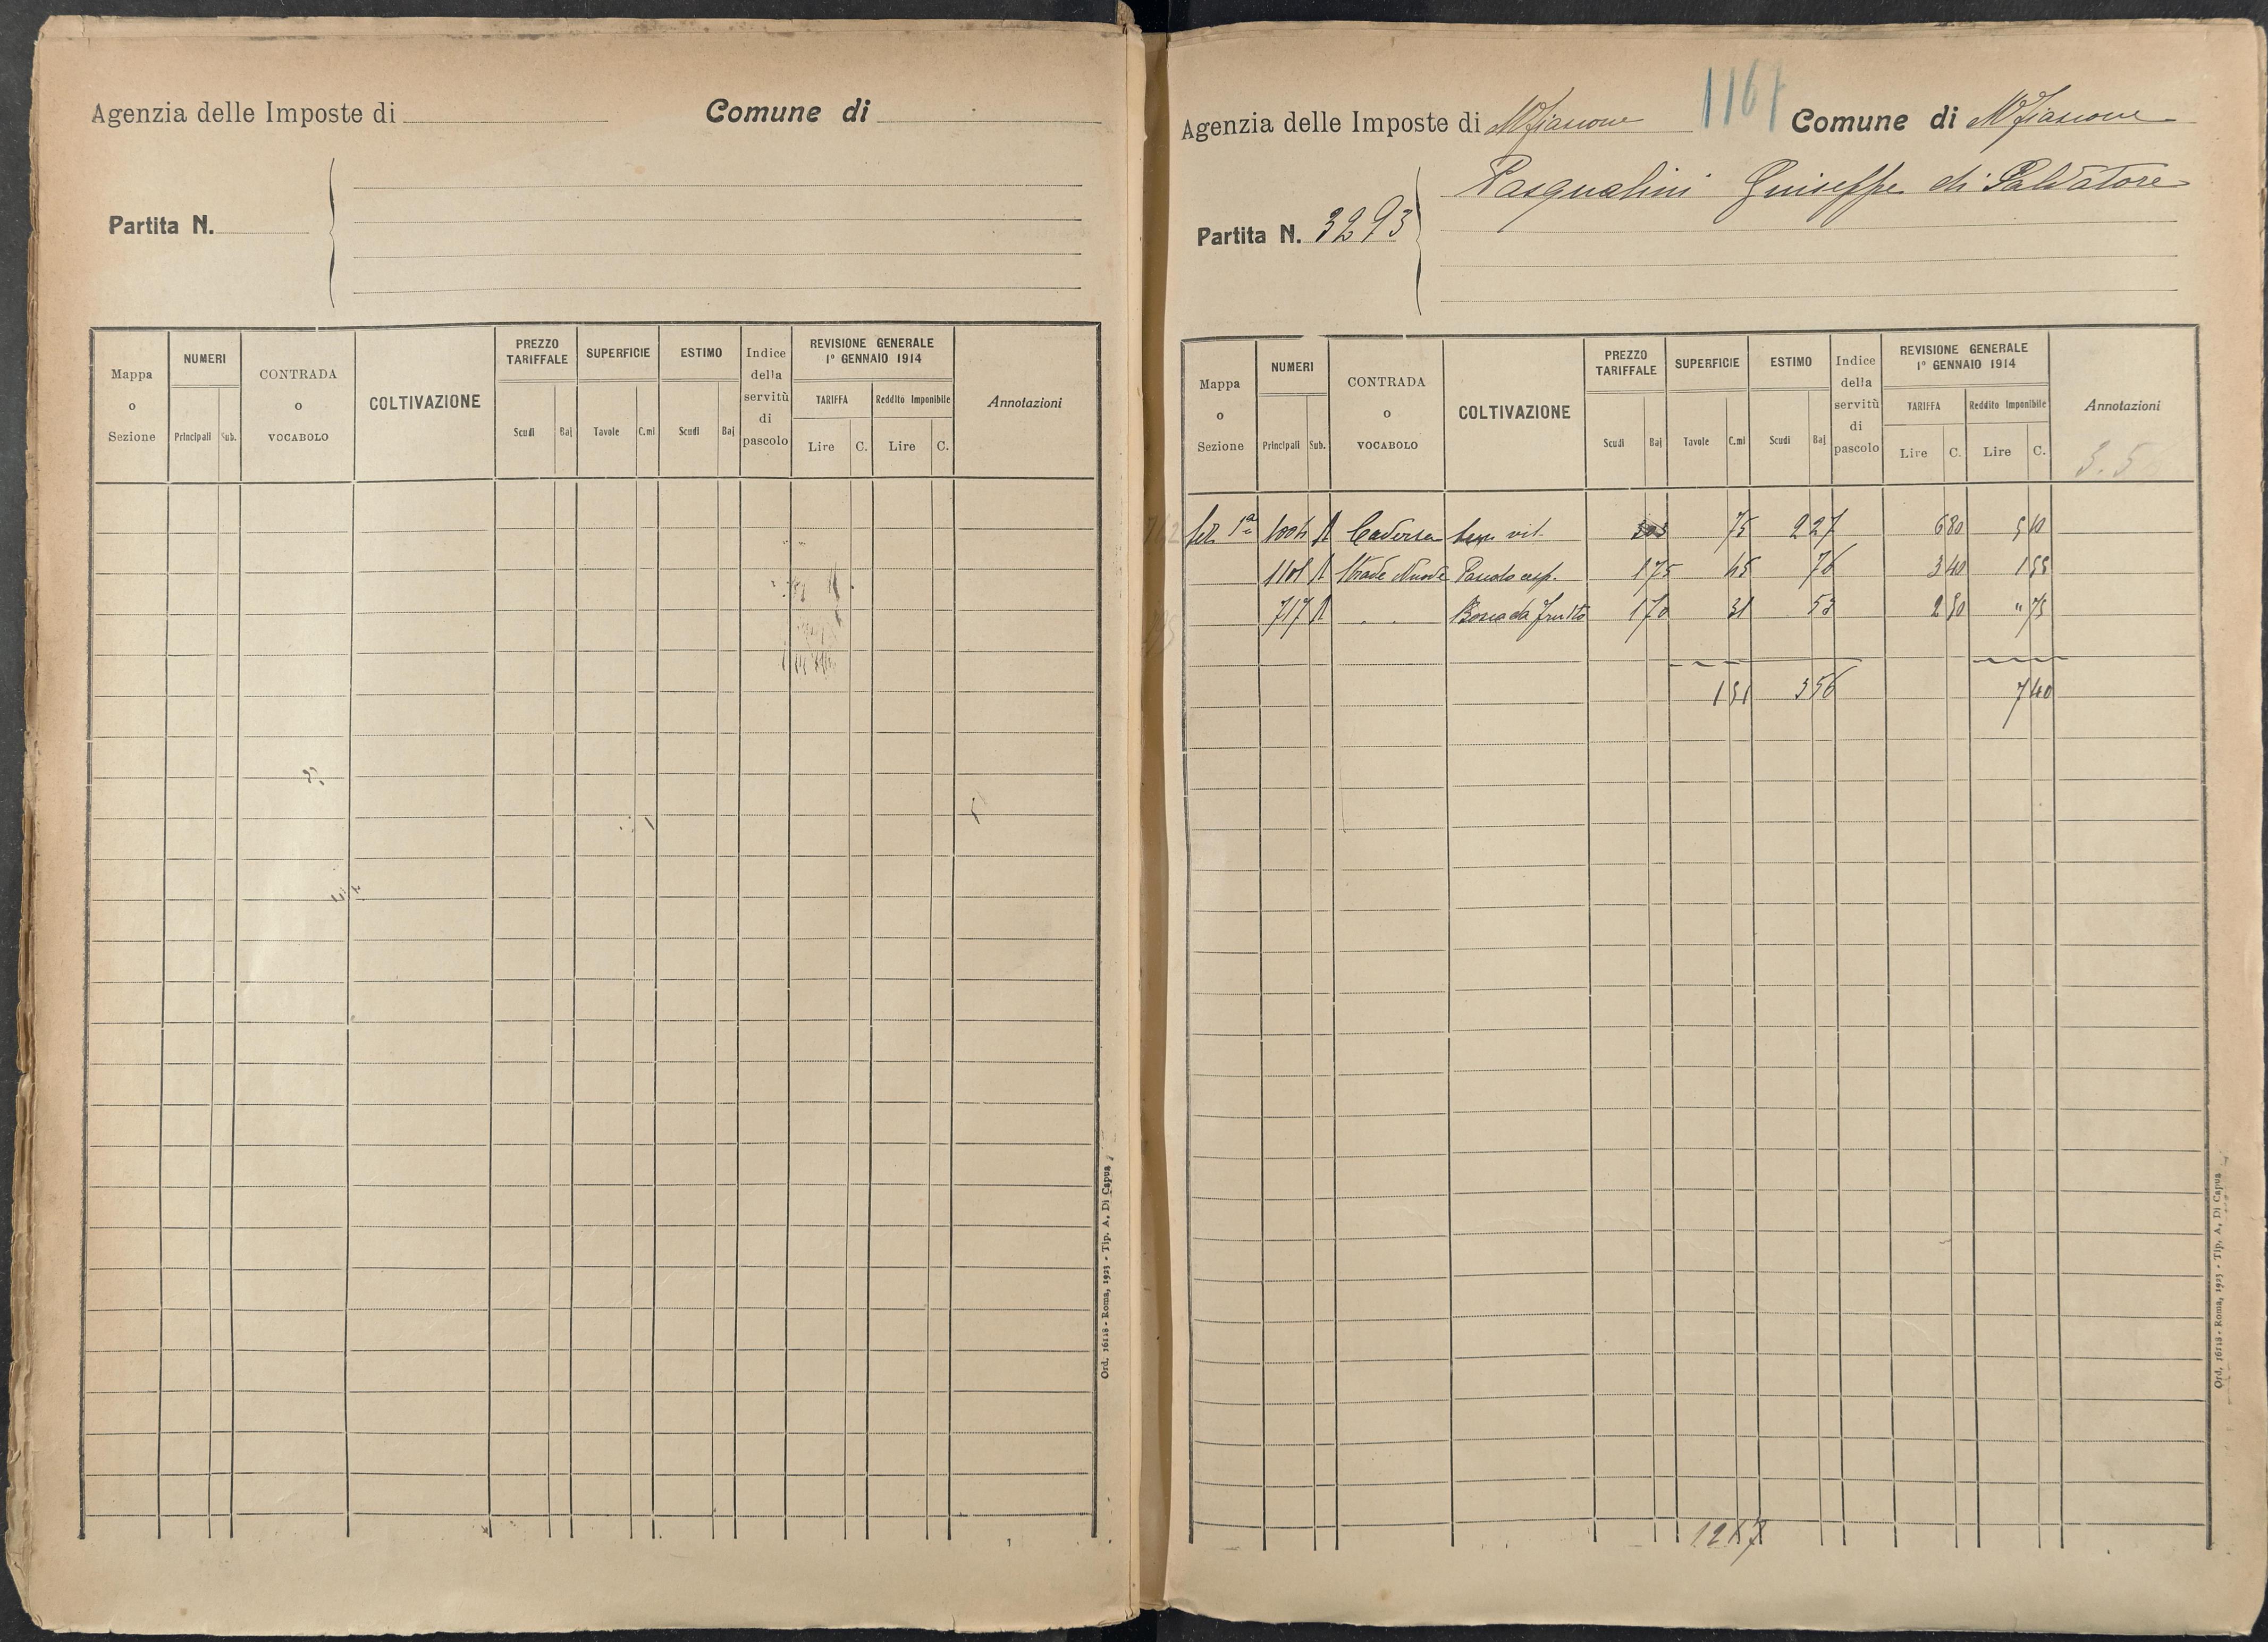 Agenzia delle Imposte di Comune di
Partita N.
Mappa o Sezione
NUMERI
Principali Sub.
CONTRADA o VOCABOLO
COLTIVAZIONE
PREZZO TARIFFALE
Scudi Baj
SUPERFICIE
Tavole C.mi
ESTIMO
Scudi Baj
Indice della servitù di pascolo
REVISIONE GENERALE
1° GENNAIO 1914
TARIFFA Reddito Imponibile
Lire C. Lire C.
Annotazioni
Ord. 16118 - Roma, 1923 - Tip. A. Di Capua
1167
Agenzia delle Imposte di Mfiascone Comune di Mfiascone
Pasqualini Guiseppe di Salvatore
Partita N. 3293
Mappa o Sezione
NUMERI
Principali Sub.
CONTRADA o VOCABOLO
COLTIVAZIONE
PREZZO TARIFFALE
Scudi Baj
SUPERFICIE
Tavole C.mi
ESTIMO
Scudi Baj
Indice della servitù di pascolo
REVISIONE GENERALE
1° GENNAIO 1914
TARIFFA Reddito Imponibile
Lire C. Lire C.
Annotazioni
1ª 1004 vit. 303 75 2 27 6 80 5 10
1101 Strade Nuove Pascolo cesp. 1 75 45 76 3 40 1 55
717 Bosco da frutto 1 70 31 53 2 50 " 75
1 51 3 56 7 40
1267
Ord. 16118 - Roma, 1923 - Tip. A. Di Capua